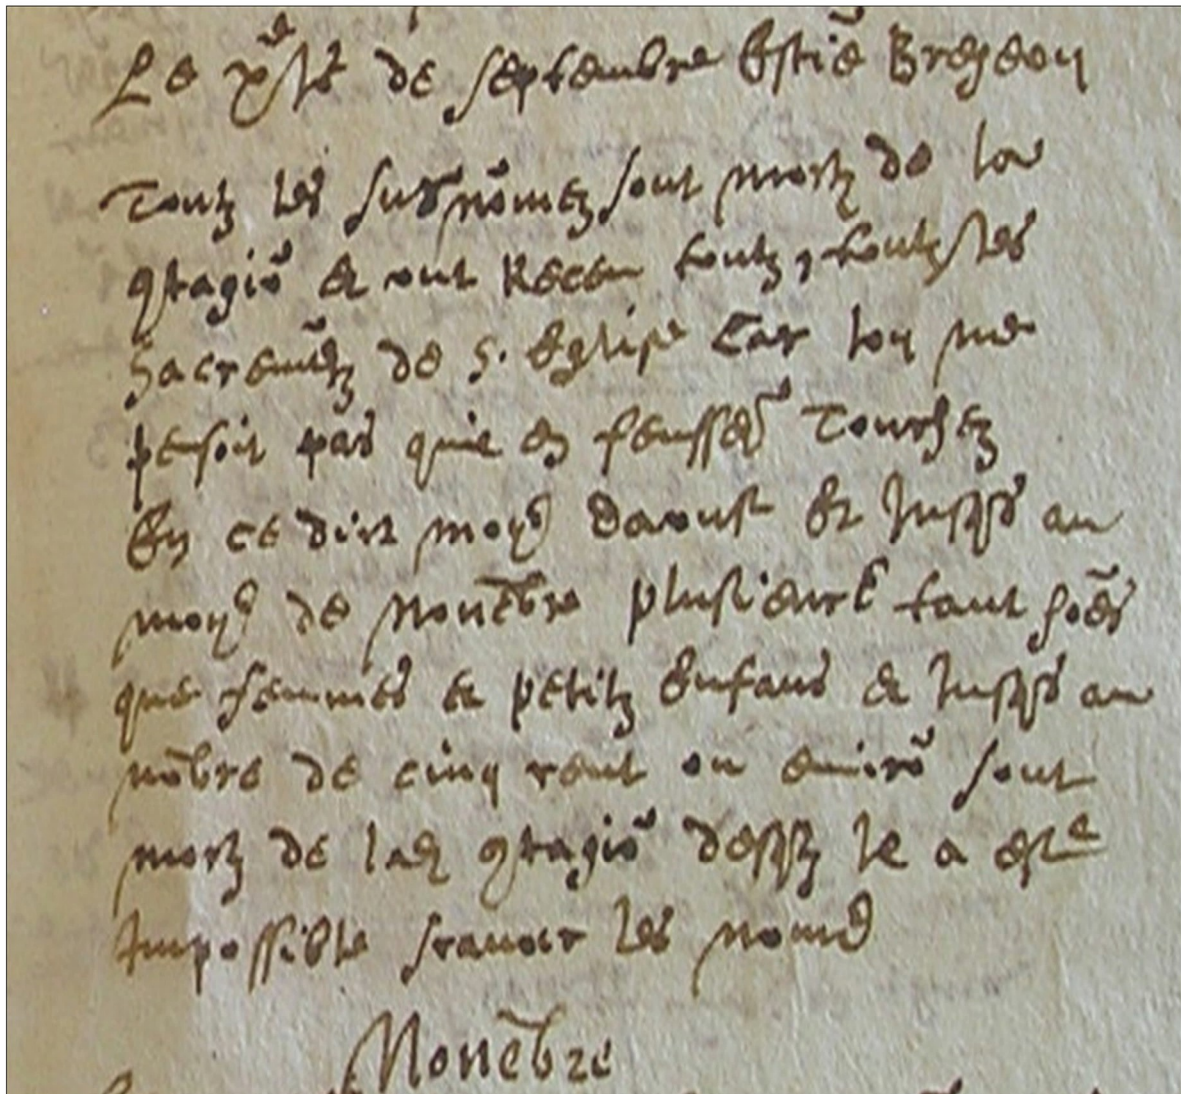 Le de septembre Estiē Bregeon
Toutz les susnōmez sont mortz de la
9tagiō et ont Receu toutz, toutz les
Sacremētz de S. Eglise Car lon ne
pēsoit pas que en feussēt Touchez
En ce dict moys daoust Et Jusqs au
moys de Nouēbre plusieurs tant hōēs
que femmes et petitz Enfans et Jusqs au
nōbre de cinq cent ou enuirō sont
mortz de lad 9tagiō desqlz Je a este
Impossible scauoir les noms
Nouēbre